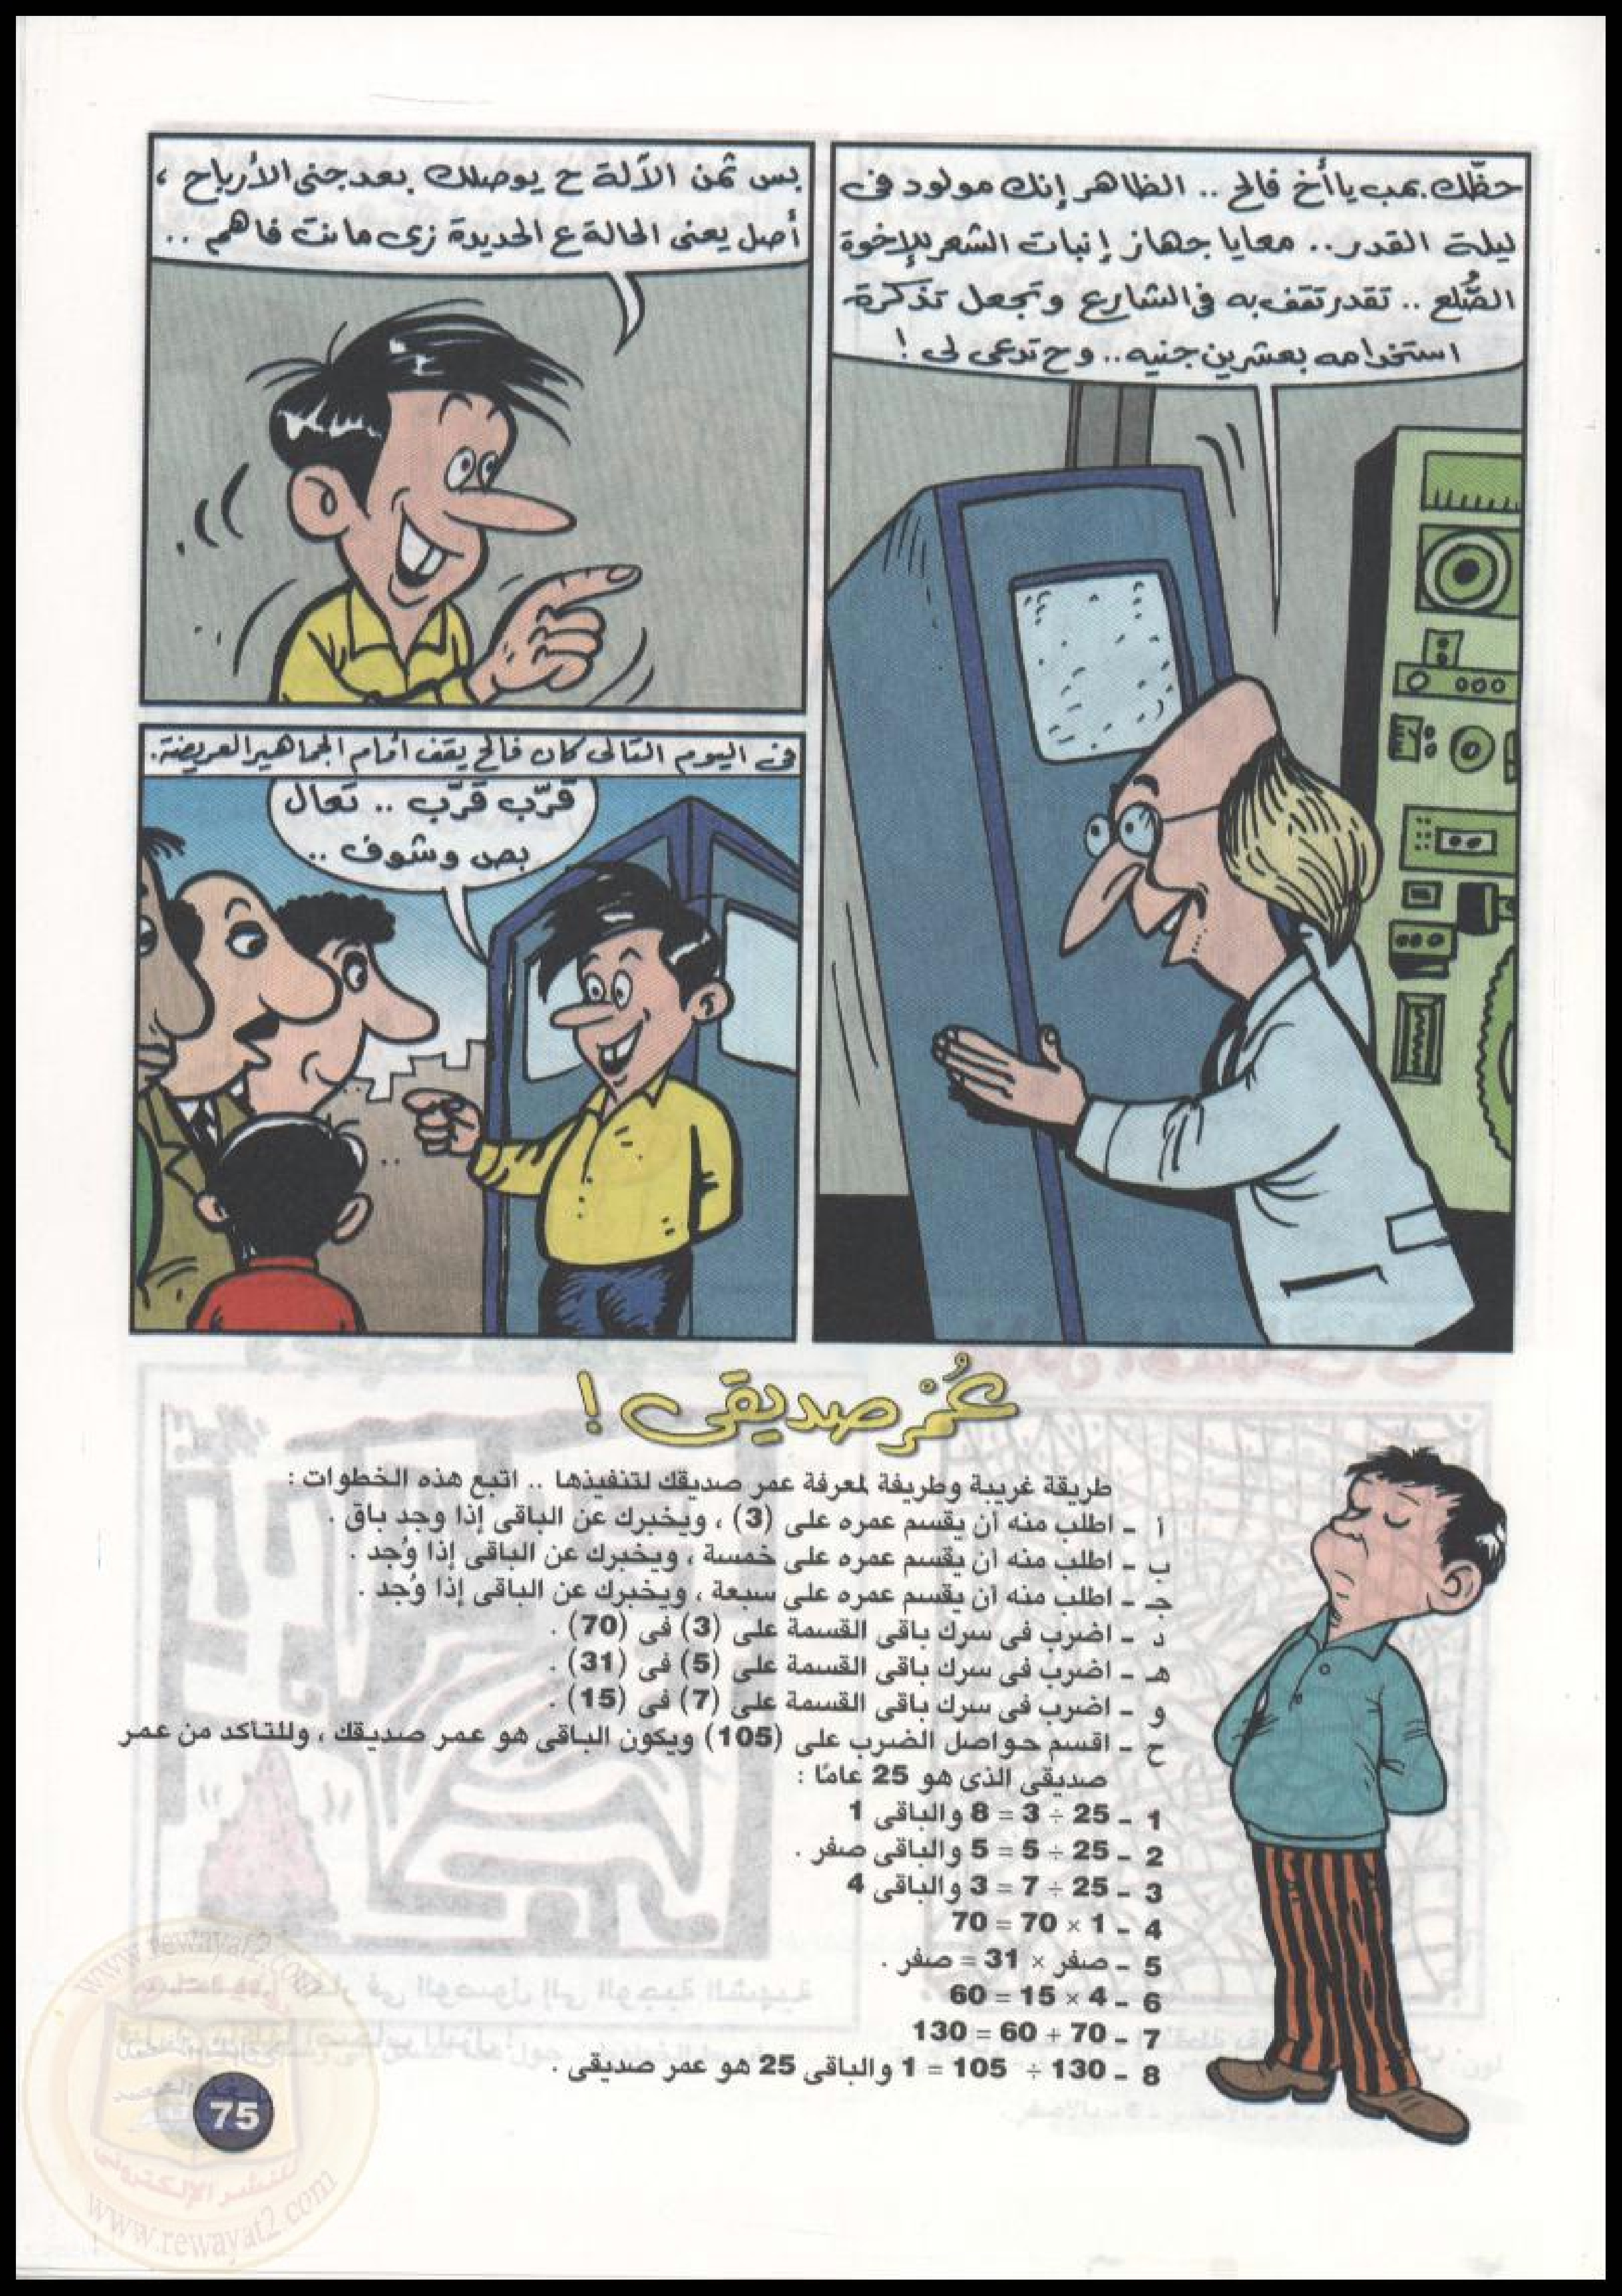 حظّك بمب يا أخ فالح .. الظاهر إنك مولود فى
ليلة القدر.. معايا جهاز إنبات الشعر للإخوة
الصُّلع .. تقدر تقف به فى الشارع وتجعل تذكرة
استخدامه بعشرين جنيه.. وح تدعى لى !
بس ثمن الآلة ح يوصلك بعد جنى الأرباح ،
أصل يعنى الحالة ع الحديدة زى مانت فاهم ..
فى اليوم التالى كان فالح يقف أمام الجماهير العريضة.
قرّب قرّب .. تعال
بص وشوف ..
عُمْر صديقى !
طريقة غريبة وطريفة لمعرفة عمر صديقك لتنفيذها .. اتبع هذه الخطوات :
أ - اطلب منه أن يقسم عمره على (3) ، ويخبرك عن الباقى إذا وجد باق .
ب - اطلب منه أن يقسم عمره على خمسة ، ويخبرك عن الباقى إذا وُجد .
جـ - اطلب منه أن يقسم عمره على سبعة ، ويخبرك عن الباقى إذا وُجد .
د - اضرب فى سرك باقى القسمة على (3) فى (70) .
هـ - اضرب فى سرك باقى القسمة على (5) فى (31) .
و - اضرب فى سرك باقى القسمة على (7) فى (15) .
ح - اقسم حواصل الضرب على (105) ويكون الباقى هو عمر صديقك ، وللتأكد من عمر
صديقى الذى هو 25 عامًا :
1 - 25 ÷ 3 = 8 والباقى 1
2 - 25 ÷ 5 = 5 والباقى صفر .
3 - 25 ÷ 7 = 3 والباقى 4
4 - 1 × 70 = 70
5 - صفر × 31 = صفر .
6 - 4 × 15 = 60
7 - 70 + 60 = 130
8 - 130 ÷ 105 = 1 والباقى 25 هو عمر صديقى .
75
www.rewayat2.com
للنشر الإلكترونى
www.rewayat2.com